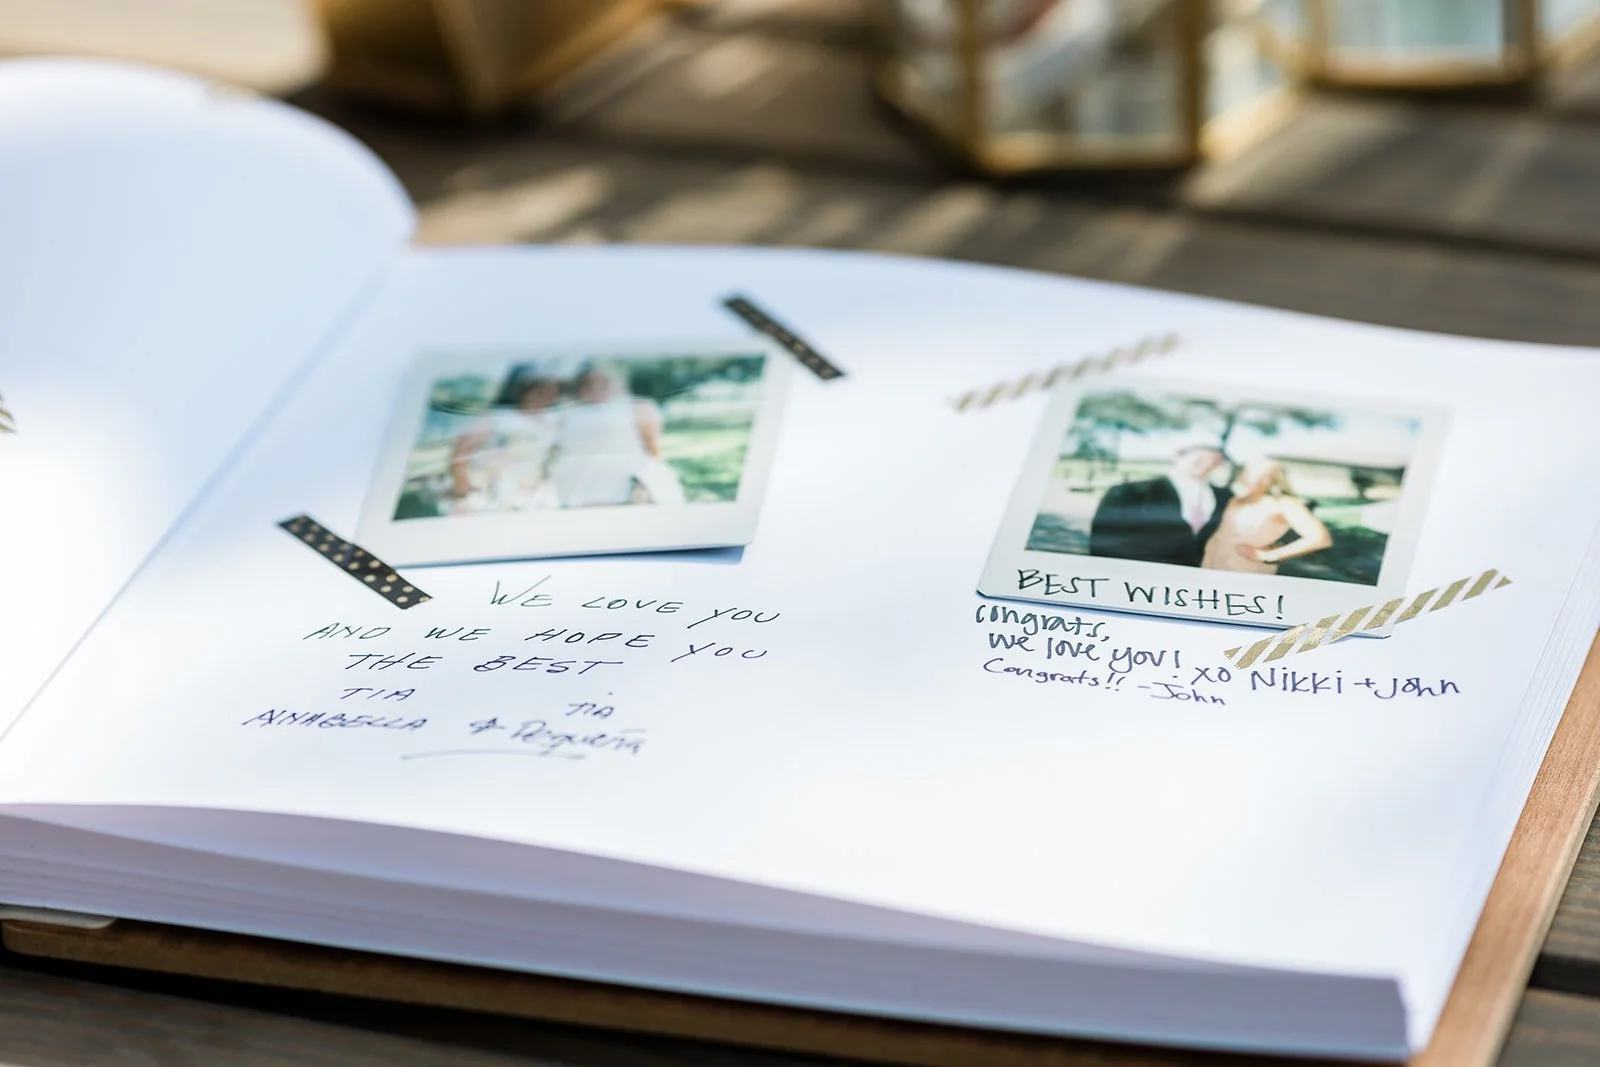 WE LOVE YOU
AND WE HOPE YOU
THE BEST
TIA TIA
ANNABELLA & Pequeña
BEST WISHES!
congrats,
we love you! xo Nikki + John
Congrats!! - John